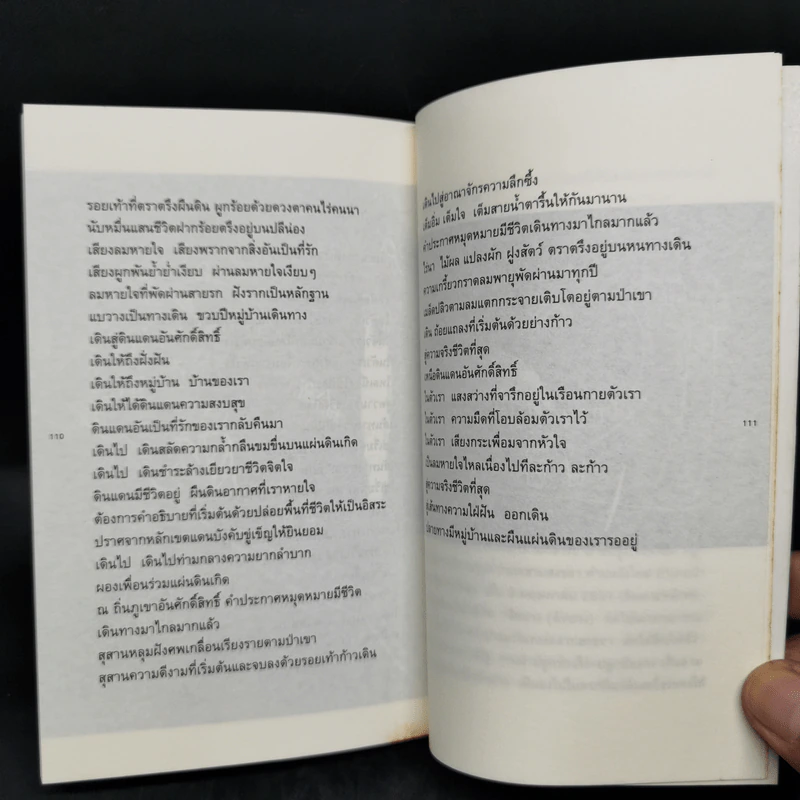 รอยเท้าที่ตราตรึงผืนดิน ผูกร้อยด้วยดวงตาคนไร่คนนา
นับหมื่นแสนชีวิตฝากร้อยตรึงอยู่บนปลีน่อง
เสียงลมหายใจ เสียงพรากจากสิ่งอันเป็นที่รัก
เสียงผูกพันย้ำย่ำเงียบ ผ่านลมหายใจเงียบๆ
ลมหายใจที่พัดผ่านสายรก ฝังรากเป็นหลักฐาน
แบวางเป็นทางเดิน ขวบปีหมู่บ้านเดินทาง
เดินสู่ดินแดนอันศักดิ์สิทธิ์
เดินให้ถึงฝั่งฝัน
เดินให้ถึงหมู่บ้าน บ้านของเรา
เดินให้ได้ดินแดนความสงบสุข
ดินแดนอันเป็นที่รักของเรากลับคืนมา
110
เดินไป เดินสลัดความกล้ำกลืนขมขื่นบนแผ่นดินเกิด
เดินไป เดินชำระล้างเยียวยาชีวิตจิตใจ
ดินแดนมีชีวิตอยู่ ผืนดินอากาศที่เราหายใจ
ต้องการคำอธิบายที่เริ่มต้นด้วยปล่อยพื้นที่ชีวิตให้เป็นอิสระ
ปราศจากหลักเขตแดนบังคับขู่เข็ญให้ยินยอม
เดินไป เดินไปท่ามกลางความยากลำบาก
ผองเพื่อนร่วมแผ่นดินเกิด
ณ ถิ่นภูเขาอันศักดิ์สิทธิ์ คำประกาศหมุดหมายมีชีวิต
เดินทางมาไกลมากแล้ว
สุสานหลุมฝังศพเกลื่อนเรียงรายตามป่าเขา
สุสานความดีงามที่เริ่มต้นและจบลงด้วยรอยเท้าก้าวเดิน
เดินไปสู่อาณาจักรความลึกซึ้ง
เต็มอิ่ม เต็มใจ เต็มสายน้ำตารื้นให้กันมานาน
คำประกาศหมุดหมายมีชีวิตเดินทางมาไกลมากแล้ว
ไร่นา ไม้ผล แปลงผัก ฝูงสัตว์ ตราตรึงอยู่บนหนทางเดิน
ความเกรี้ยวกราดลมพายุพัดผ่านมาทุกปี
เมล็ดปลิวตามลมแตกกระจายเติบโตอยู่ตามป่าเขา
เดิน ถ้อยแถลงที่เริ่มต้นด้วยย่างก้าว
สู่ความจริงชีวิตที่สุด
เหนือดินแดนอันศักดิ์สิทธิ์
ในตัวเรา แสงสว่างที่จารึกอยู่ในเรือนกายตัวเรา
ในตัวเรา ความมืดที่โอบล้อมตัวเราไว้
111
ในตัวเรา เสียงกระเพื่อมจากหัวใจ
เป็นลมหายใจไหลเนื่องไปทีละก้าว ละก้าว
สู่ความจริงชีวิตที่สุด
สู่เส้นทางความใฝ่ฝัน ออกเดิน
ปลายทางมีหมู่บ้านและผืนแผ่นดินของเรารออยู่